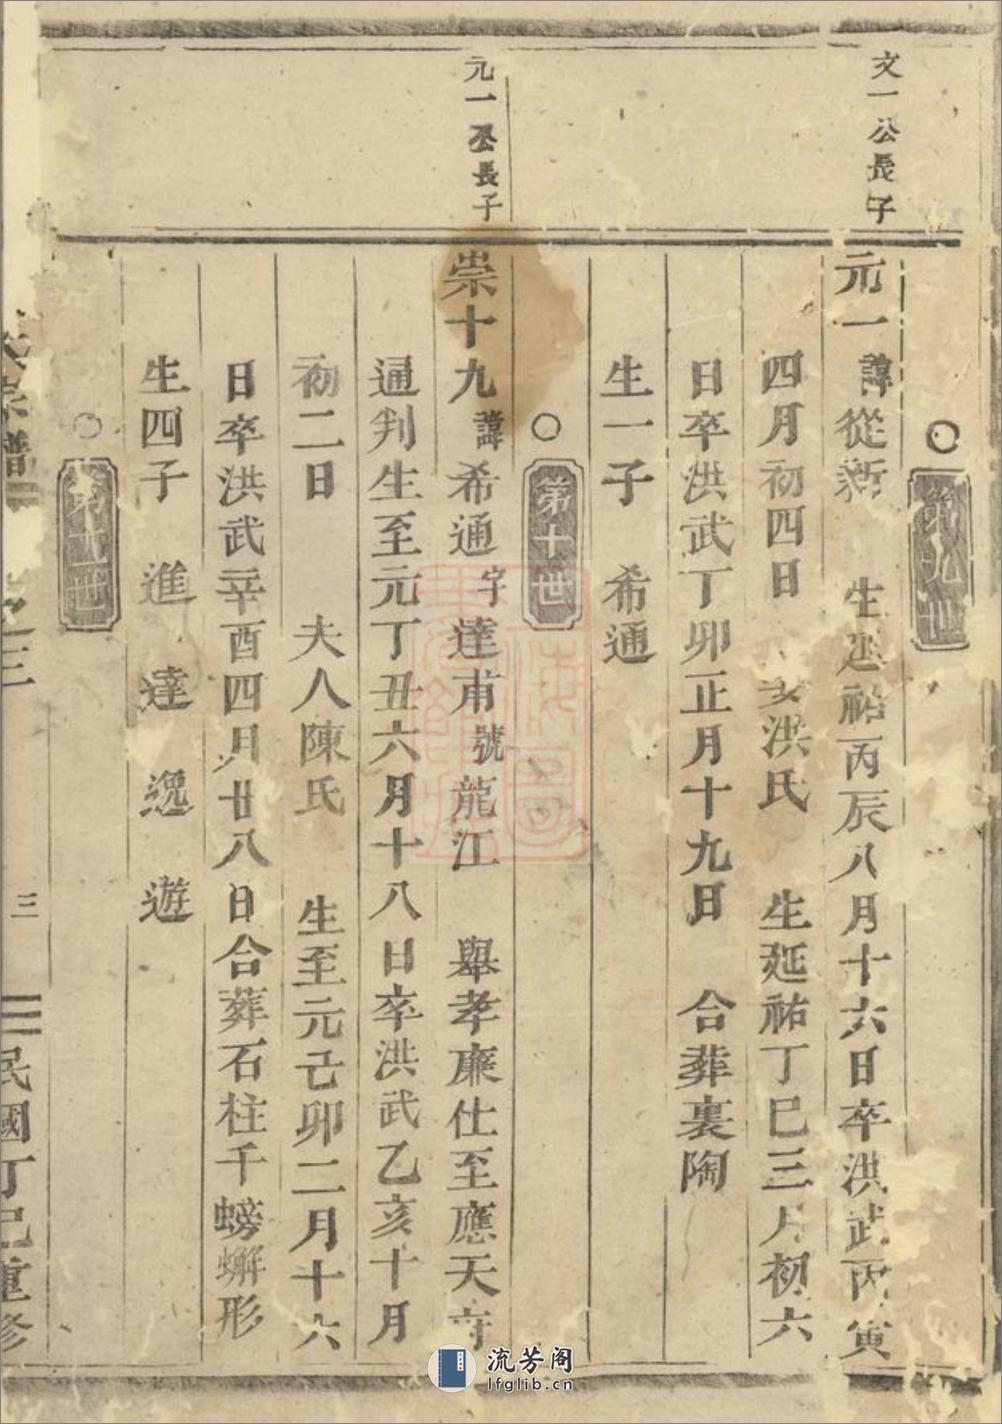 第九世
文一公長子
元一 諱從新 生延祐丙辰八月十六日卒洪武丙寅
四月初四日 娶洪氏 生延祐丁巳三月初六
日卒洪武丁卯正月十九日 合葬裏陶
生一子 希通
第十世
元一公長子
崇十九 諱希通字達甫號龍江 舉孝廉仕至應天府
通判生至元丁丑六月十八日卒洪武乙亥十月
初二日 夫人陳氏 生至元己卯二月十六
日卒洪武辛酉四月廿八日合葬石柱千螃蠏形
生四子 進 達 逸 遊
第十一世
宗譜
之三
三
民國丁巳重修
流芳阁
lfglib.cn